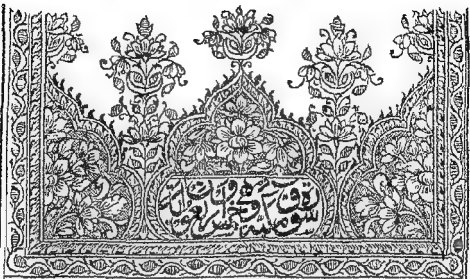 سورة ق مكية وهي خمس واربعون اية